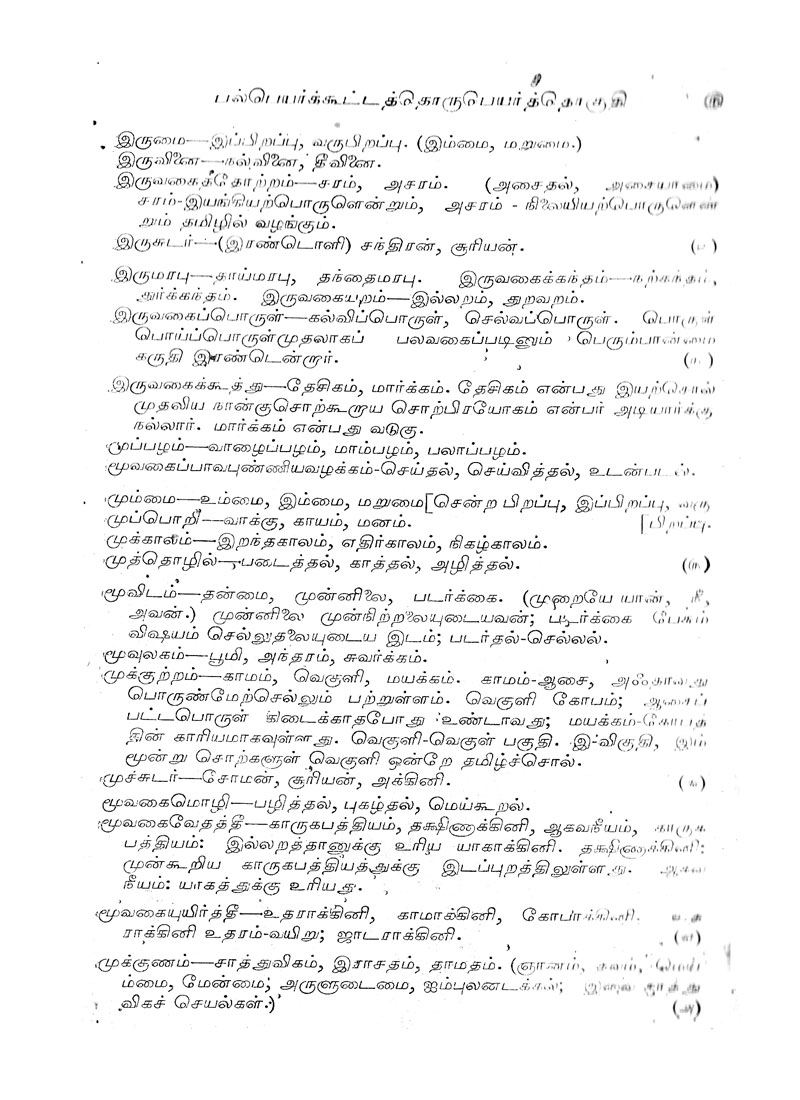 பல்பெயர்க்கூட்டத்தொருபெயர்த்தொகுதி
இருமை—இப்பிறப்பு, வருபிறப்பு. (இம்மை, மறுமை.)
இருவினை—நல்வினை, தீவினை.
இருவகைத்தோற்றம்—சரம், அசரம். (அசைதல், அசையாமை)
சரம்-இயங்கியற்பொருளென்றும், அசரம் - நிலையியற்பொருளென்
றும் தமிழில் வழங்கும்.
இருசுடர்—(இரண்டொளி) சந்திரன், சூரியன்.
இருமரபு—தாய்மரபு, தந்தைமரபு. இருவகைக்கந்தம்—நற்கந்தம்,
துர்க்கந்தம். இருவகையறம்—இல்லறம், துறவறம்.
இருவகைப்பொருள்—கல்விப்பொருள், செல்வப்பொருள். பொருள்
பொய்ப்பொருள்முதலாகப் பலவகைப்படினும் பெரும்பான்மை
கருதி இரண்டென்றார்.
இருவகைக்கூத்து—தேசிகம், மார்க்கம். தேசிகம் என்பது இயற்சொல்
முதலிய நான்குசொற்கூறாய சொற்பிரயோகம் என்பர் அடியார்க்கு
நல்லார். மார்க்கம் என்பது வடுகு.
முப்பழம்—வாழைப்பழம், மாம்பழம், பலாப்பழம்.
மூவகைப்பாவபுண்ணியவழக்கம்-செய்தல், செய்வித்தல், உடன்படல்.
மும்மை—உம்மை, இம்மை, மறுமை[சென்ற பிறப்பு, இப்பிறப்பு, வரு
முப்பொறி—வாக்கு, காயம், மனம். [பிறப்பு.
முக்காலம்—இறந்தகாலம், எதிர்காலம், நிகழ்காலம்.
முத்தொழில்—படைத்தல், காத்தல், அழித்தல். (௫)
மூவிடம்—தன்மை, முன்னிலை, படர்க்கை. (முறையே யான், நீ,
அவன்.) முன்னிலை முன்நிற்றலையுடையவன்; படர்க்கை பேசும்
விஷயம் செல்லுதலையுடைய இடம்; படர்தல்-செல்லல்.
மூவுலகம்—பூமி, அந்தரம், சுவர்க்கம்.
முக்குற்றம்—காமம், வெகுளி, மயக்கம். காமம்-ஆசை, அஃதாவது
பொருண்மேற்செல்லும் பற்றுள்ளம். வெகுளி கோபம்; ஆசைப்
பட்டபொருள் கிடைக்காதபோது உண்டாவது; மயக்கம்-கோபத்
தின் காரியமாகவுள்ளது. வெகுளி-வெகுள் பகுதி. இ-விகுதி, இம்
மூன்று சொற்களுள் வெகுளி ஒன்றே தமிழ்ச்சொல்.
முச்சுடர்—சோமன், சூரியன், அக்கினி. (௬)
மூவகைமொழி—பழித்தல், புகழ்தல், மெய்கூறல்.
மூவகைவேதத்தீ—காருகபத்தியம், தக்ஷிணாக்கினி, ஆகவநீயம், காருக
பத்தியம்: இல்லறத்தானுக்கு உரிய யாகாக்கினி. தக்ஷிணாக்கினி:
முன்கூறிய காருகபத்தியத்துக்கு இடப்புறத்திலுள்ளது. ஆகவ
நீயம்: யாகத்துக்கு உரியது.
மூவகையுயிர்த்தீ—உதராக்கினி, காமாக்கினி, கோபாக்கினி. உத
ராக்கினி உதரம்-வயிறு; ஜாடராக்கினி. (௭)
முக்குணம்—சாத்துவிகம், இராசதம், தாமதம். (ஞானம், தவம், மெய்
ம்மை, மேன்மை; அருளுடைமை, ஐம்புலனடக்கல்; இவை சாத்து
விகச் செயல்கள்.) (௮)